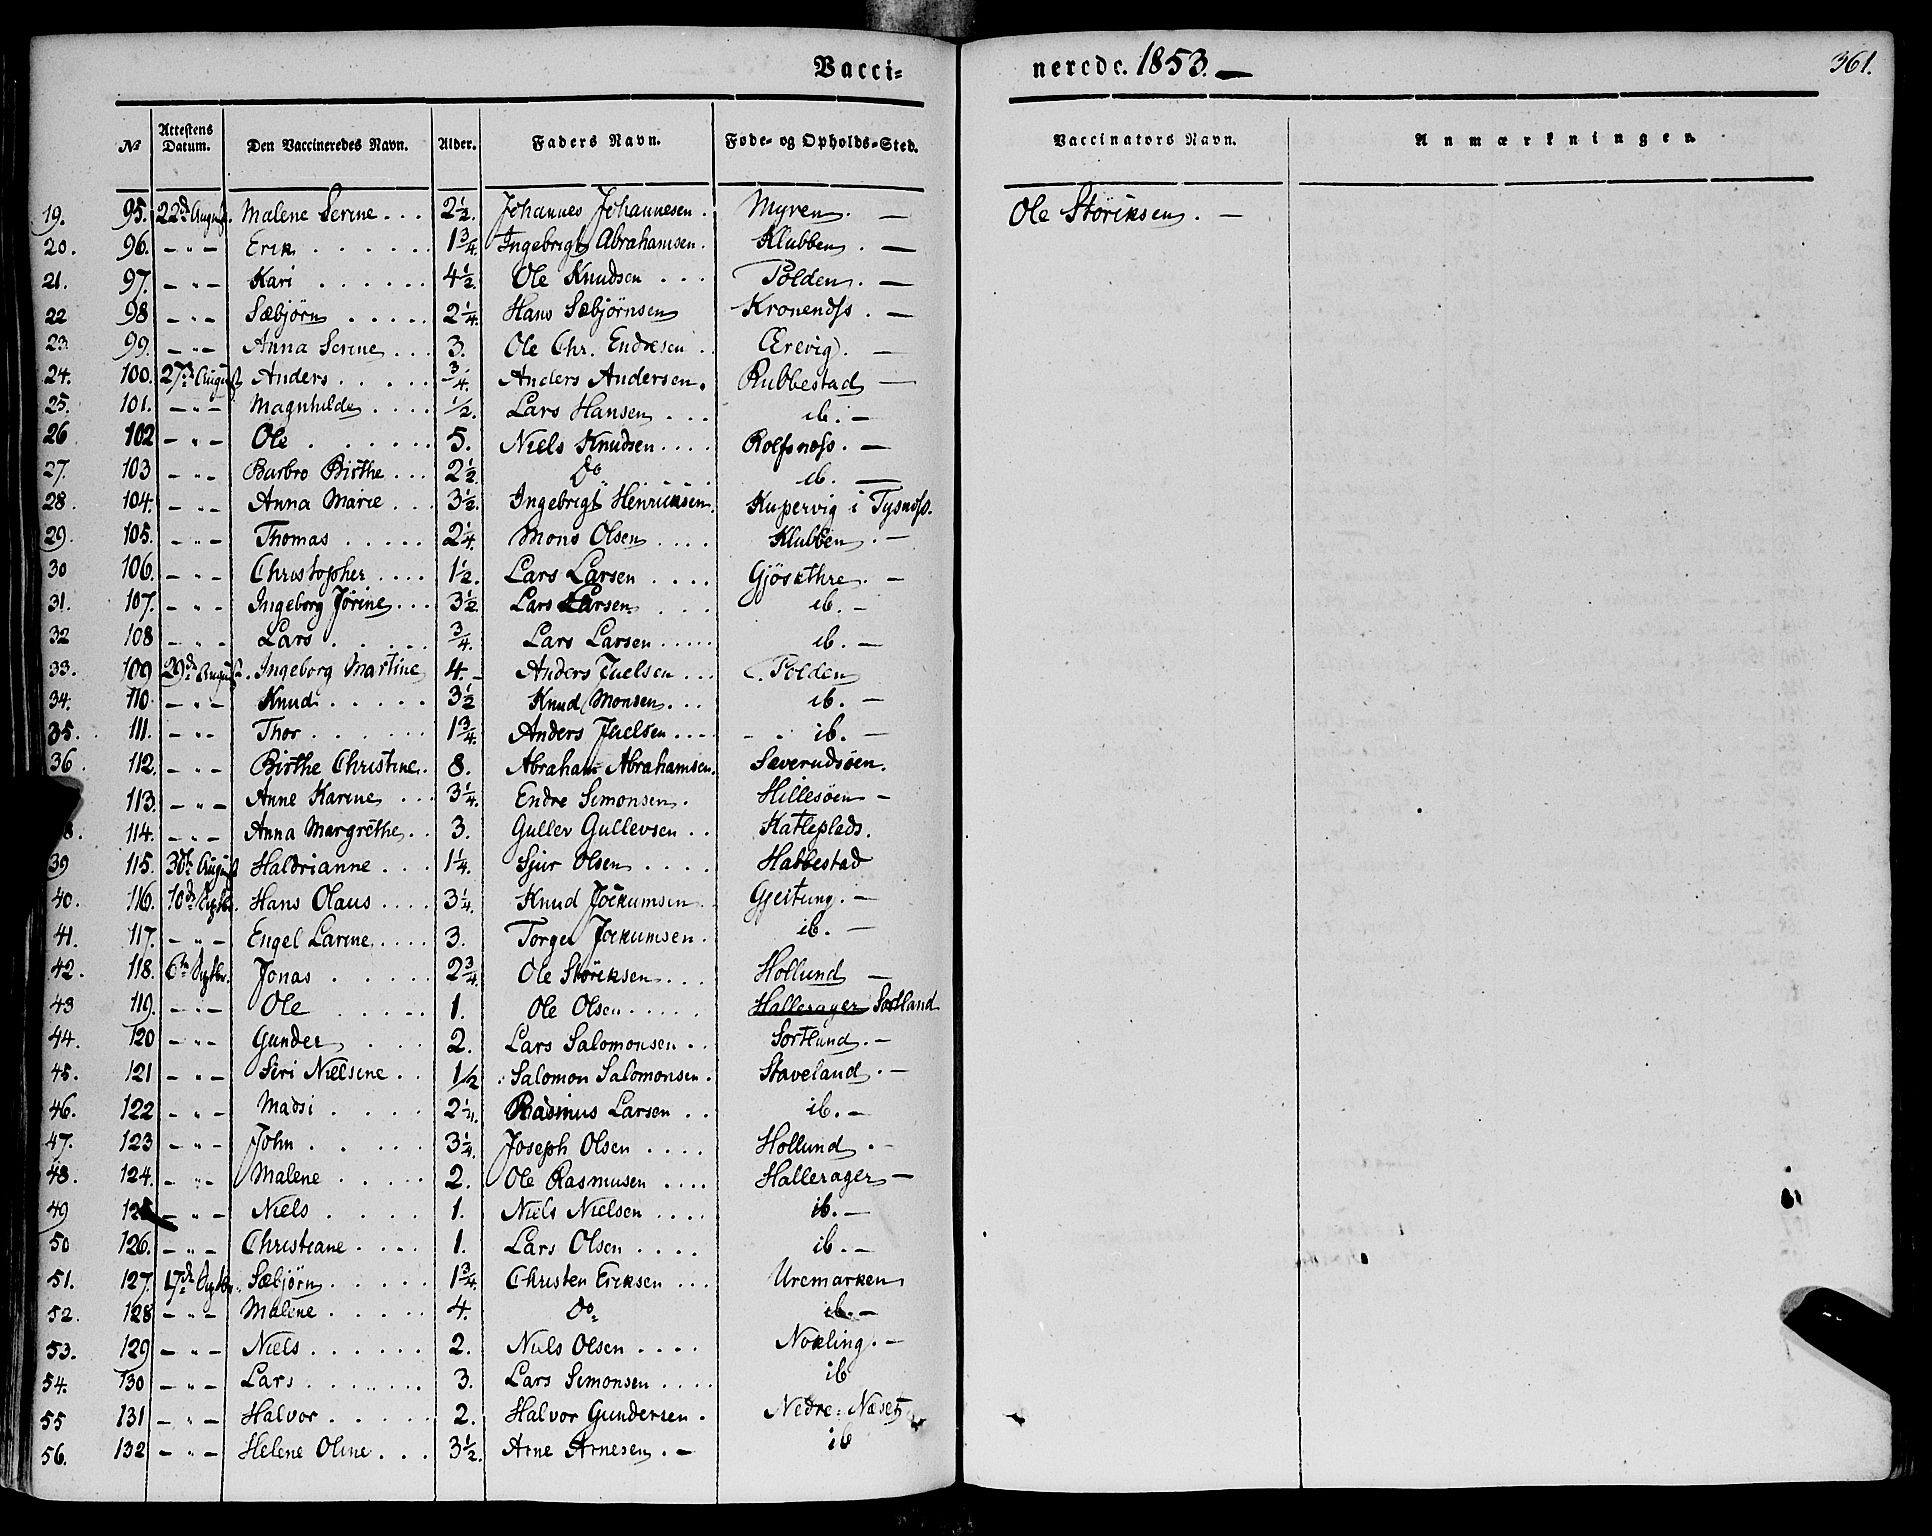 Vacci=
nerede. 1853. —
361.
№ Attestens Datum. Den Vaccineredes Navn. Alder. Faders Navn. Føde- og Opholds-Sted. Vaccinators Navn. Anmærkningen
19. 95. 22d August. Malene Serine . . . 2½. Johannes Johannesen. Myren. — Ole Störiksen. —
20. 96. — " — Erik . . . . . . 1¾. Ingebrigt Abrahamsen. Klubben. —
21. 97. — " — Kari . . . . . . 4½. Ole Knudsen . . . Polden. —
22 98 — " — Sæbjörn . . . . . 2¼. Hans Sæbjörnsen —
23. 99. — " — Anna Serine . . . 3. Ole Chr. Endresen . . —
24. 100. 27de August Anders . . . . . ¾. Anders Andersen. Rubbestad —
25. 101. — " — Magnhilde . . . . ½. Lars Hansen . . . ib. —
26 102 — " — Ole . . . . . . 5. Niels Knudsen . . . . Rolfsnæss. —
27. 103 — " — Barbro Birthe . . . 2½. Do ib. —
28. 104. — " — Anna Marie . . . 3½. Ingebrigt Henriksen. Kupervig i Tysnæss.
29. 105. — " — Thomas . . . . . 2¼. Mons Olsen . . . . Klubben. —
30 106. — " — Christopher . . . . 1½. Lars Larsen . . . . —
31. 107. — " — Ingeborg Jörine . . . 3½ Lars Larsen . . . ib. —
32 108 — " — Lars . . . . . ¾. Lars Larsen . . . . . ib. —
33. 109 29de August. Ingeborg Martine 4. — Anders Juelsen . . . Polden
34. 110. — " — Knud . . . . . 3½ Knud Monsen . . . ib. —
35. 111. — " — Thor . . . . . . 1¾. Anders Juelsen . . . . ib. —
36. 112. — " — Birthe Christine. 8. Abraham Abrahamsen. Sæverudsöen.
113. — " — Anne Karine . . . 3¼. Endre Simonsen. Hillesöen —
114. — " — Anna Margrethe. . 3. Guller Gullevsen . . Katleplads.
39 115. 30te August Haldrianne . . . 1¼. Sjur Olsen . . . . Habbestad
40. 116. Hans Olaus . . . . 3¼. Knud Jockumsen . . Gjeitung. —
41. 117. — " — Engel Larine . . . . 3. Torger Jockumsen . ib. —
42. 118. Jonas . . . . . 2¾. Ole Störiksen . . . Hollund —
43 119. — " — Ole . . . . . 1. Ole Olsen . . . . . Hallerager Sortland
44. 120 — " — Gunder . . . . 2. Lars Salomonsen . . Sortlund. —
45. 121 — " — Siri Nielsene . . 1/2 Salomon Salomonsen . Staveland. —
46. 122 — " — Madsi . . . . 2¼. Rasmus Larsen . . ib. —
47. 123 — " — John . . . . . 3¼. Joseph Olsen . . . . Hollund. —
48. 124. — " — Malene . . . . . 2. Ole Rasmusen . . . . Hallerager —
49 125 — " — Niels . . . . . 1. Niels Nielsen . . . . ib. —
50 126. — " — Christiane . . . . 1. Lars Olsen . . . . ib. —
51. 127. Sæbjörn . . . . . 1¾. Christen Eriksen . . . Uremarken
52. 128 — " — Malene . . . . . 4. Do ib. —
53. 129 — " — Niels . . . . . . 2. Niels Olsen . . . . Nokling. —
54. 130 — " — Lars . . . . . . 3. Lars Simonsen . . . . ib
55 131 — " — Halvor . . . . . 2. Halvor Gundersen . Nedre-Næset
56. 132 — " — Helene Oline . . . 3½. Arne Arnesen . — ib